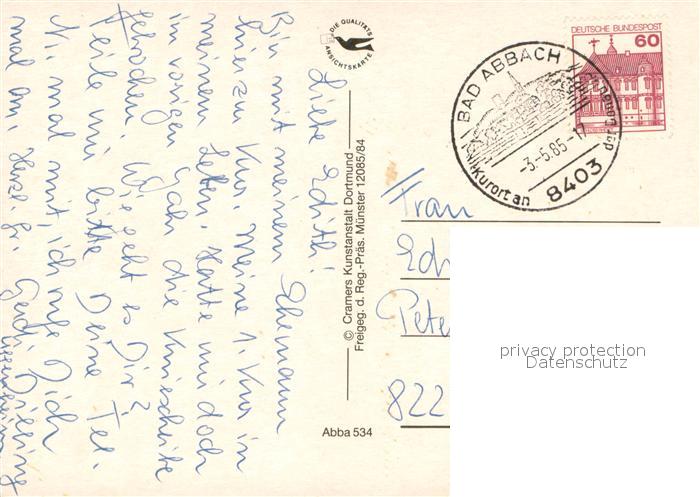 Liebe Edith!
Bin mit meinem Ehemann
hier zu Kur. Meine 1. Kur in
meinem Leben. Hatte mir doch
im vorigen Jahr die Kniescheibe
gebrochen. Wie geht es Dir?
Teile mir bitte Deine Tel.
Nr. mal mit, ich rufe Dich
mal an. Herzl. Gr.
DIE QUALITÄTS
ANSICHTSKARTE
© Cramers Kunstanstalt Dortmund
Freigeg. d. Reg.-Präs. Münster 12085/84
Abba 534
DEUTSCHE BUNDESPOST
60
BAD ABBACH
-3.-5.85-
8403
Kurort an der Donau
Frau
Ed
Pete
822
privacy protection
Datenschutz